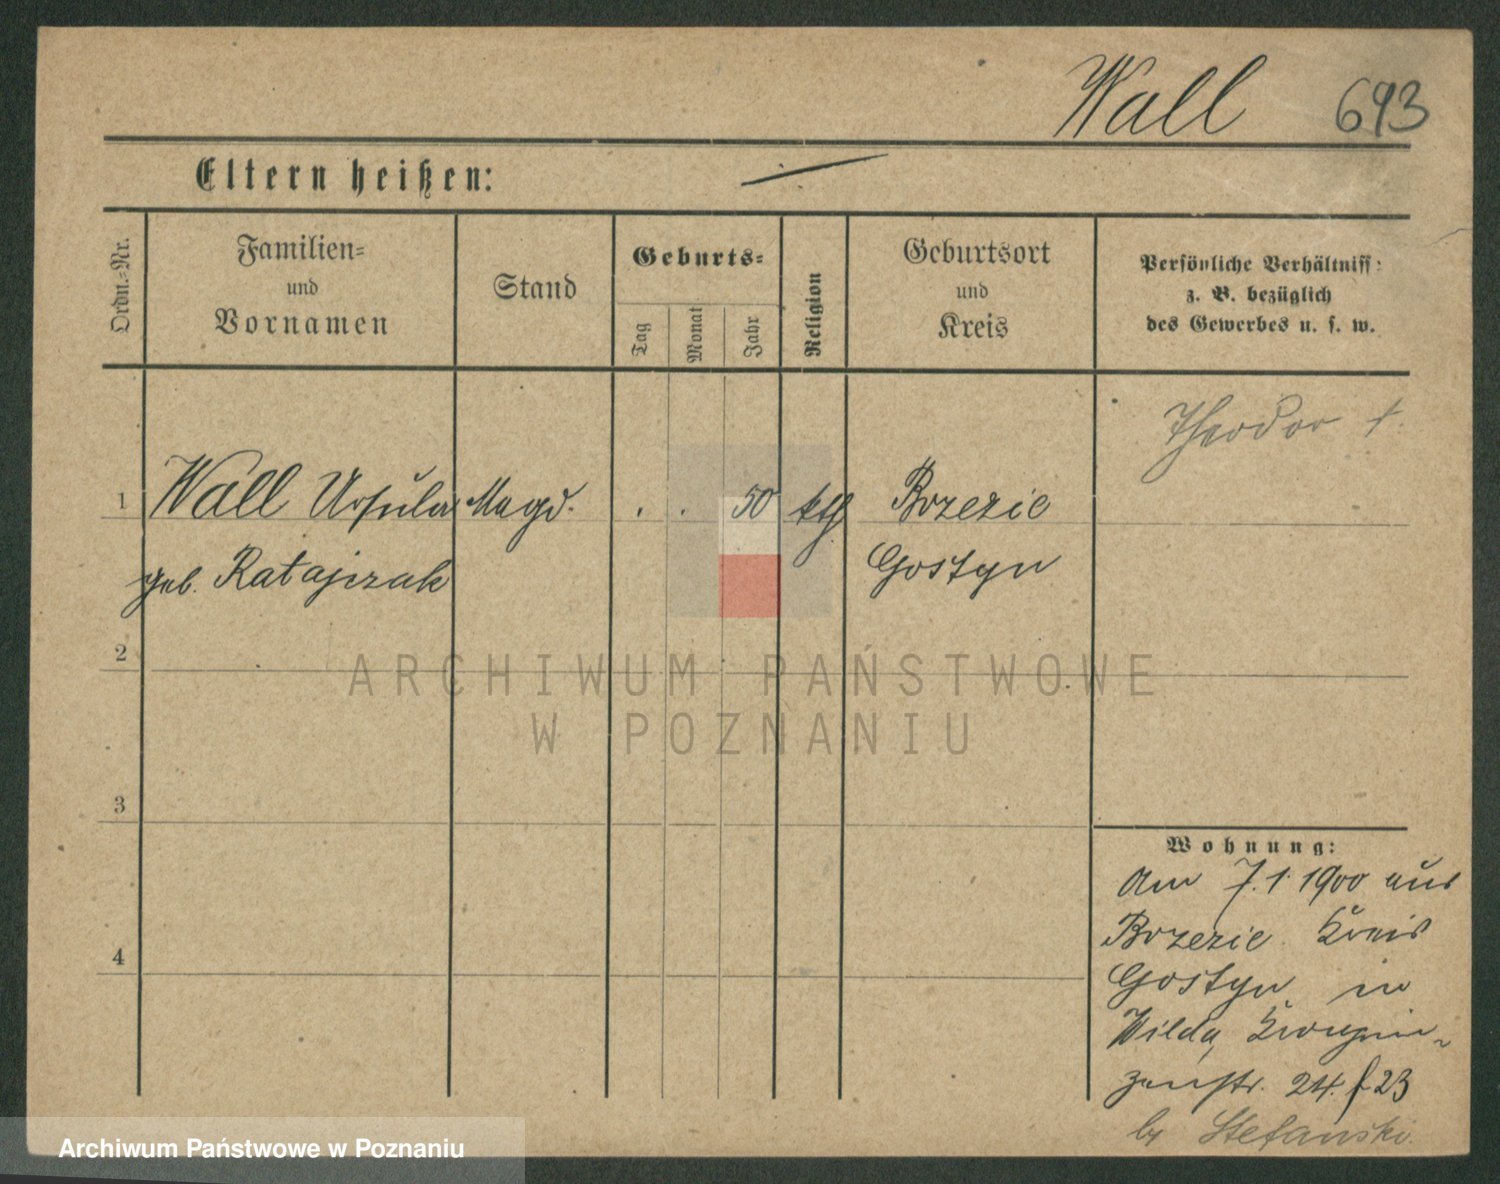 Wall 693
Eltern heißen: —
Ordn.-Nr.
Familien-
und
Vornamen
Stand
Geburts-
Tag
Monat
Jahr
Religion
Geburtsort
und
Kreis
Persönliche Verhältniss:
z. B. bezüglich
des Gewerbes u. s. w.
Theodor †.
1 Wall Ursula Magd. . . 50 kth Brzezie
geb. Ratajczak Gostyn
2
ARCHIWUM PAŃSTWOWE
W POZNANIU
3
4
Wohnung:
Am 7.1.1900 aus
Brzezie Kreis
Gostyn in
Wilda, Kronprin-
zenstr. 24. f 23
by Stefanski.
Archiwum Państwowe w Poznaniu